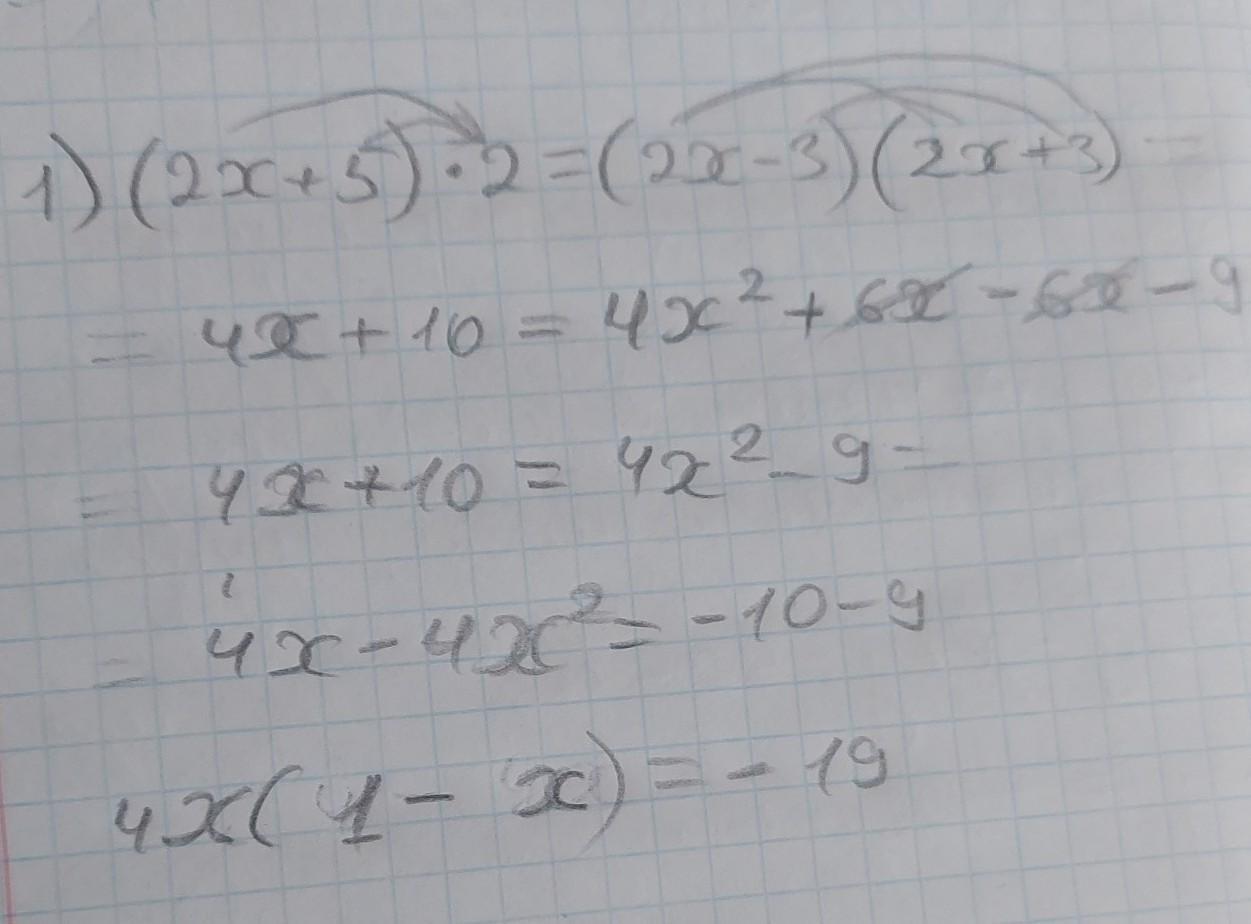 1) (2x+5)·2=(2x-3)(2x+3)=
= 4x+10=4x²+6x-6x-9
= 4x+10=4x²-9=
= 4x-4x²=-10-9
4x(1-x)=-19